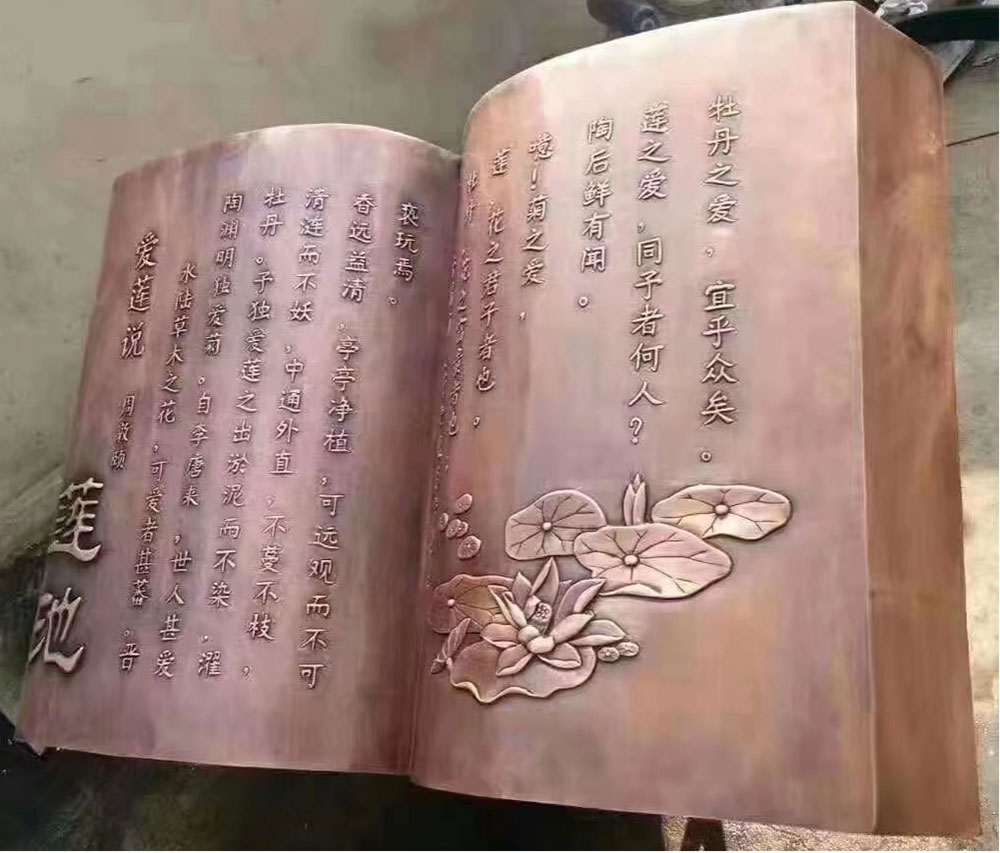 莲池
爱莲说 周敦颐
水陆草木之花，可爱者甚蕃。晋
陶渊明独爱菊。自李唐来，世人甚爱
牡丹。子独爱莲之出淤泥而不染，濯
清涟而不妖，中通外直，不蔓不枝，
香远益清，亭亭净植，可远观而不可
亵玩焉。
牡丹 花之富贵者也
莲 花之君子者也。
噫！菊之爱，
陶后鲜有闻。
莲之爱，同子者何人？
牡丹之爱，宜乎众矣。